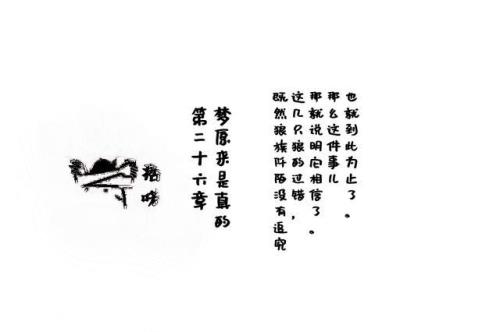 第二十六章
梦原来是真的
既然狼族阡陌没有追究
这几只狼的过错，
那就说明它相信了。
那么这件事儿
也就到此为止了。